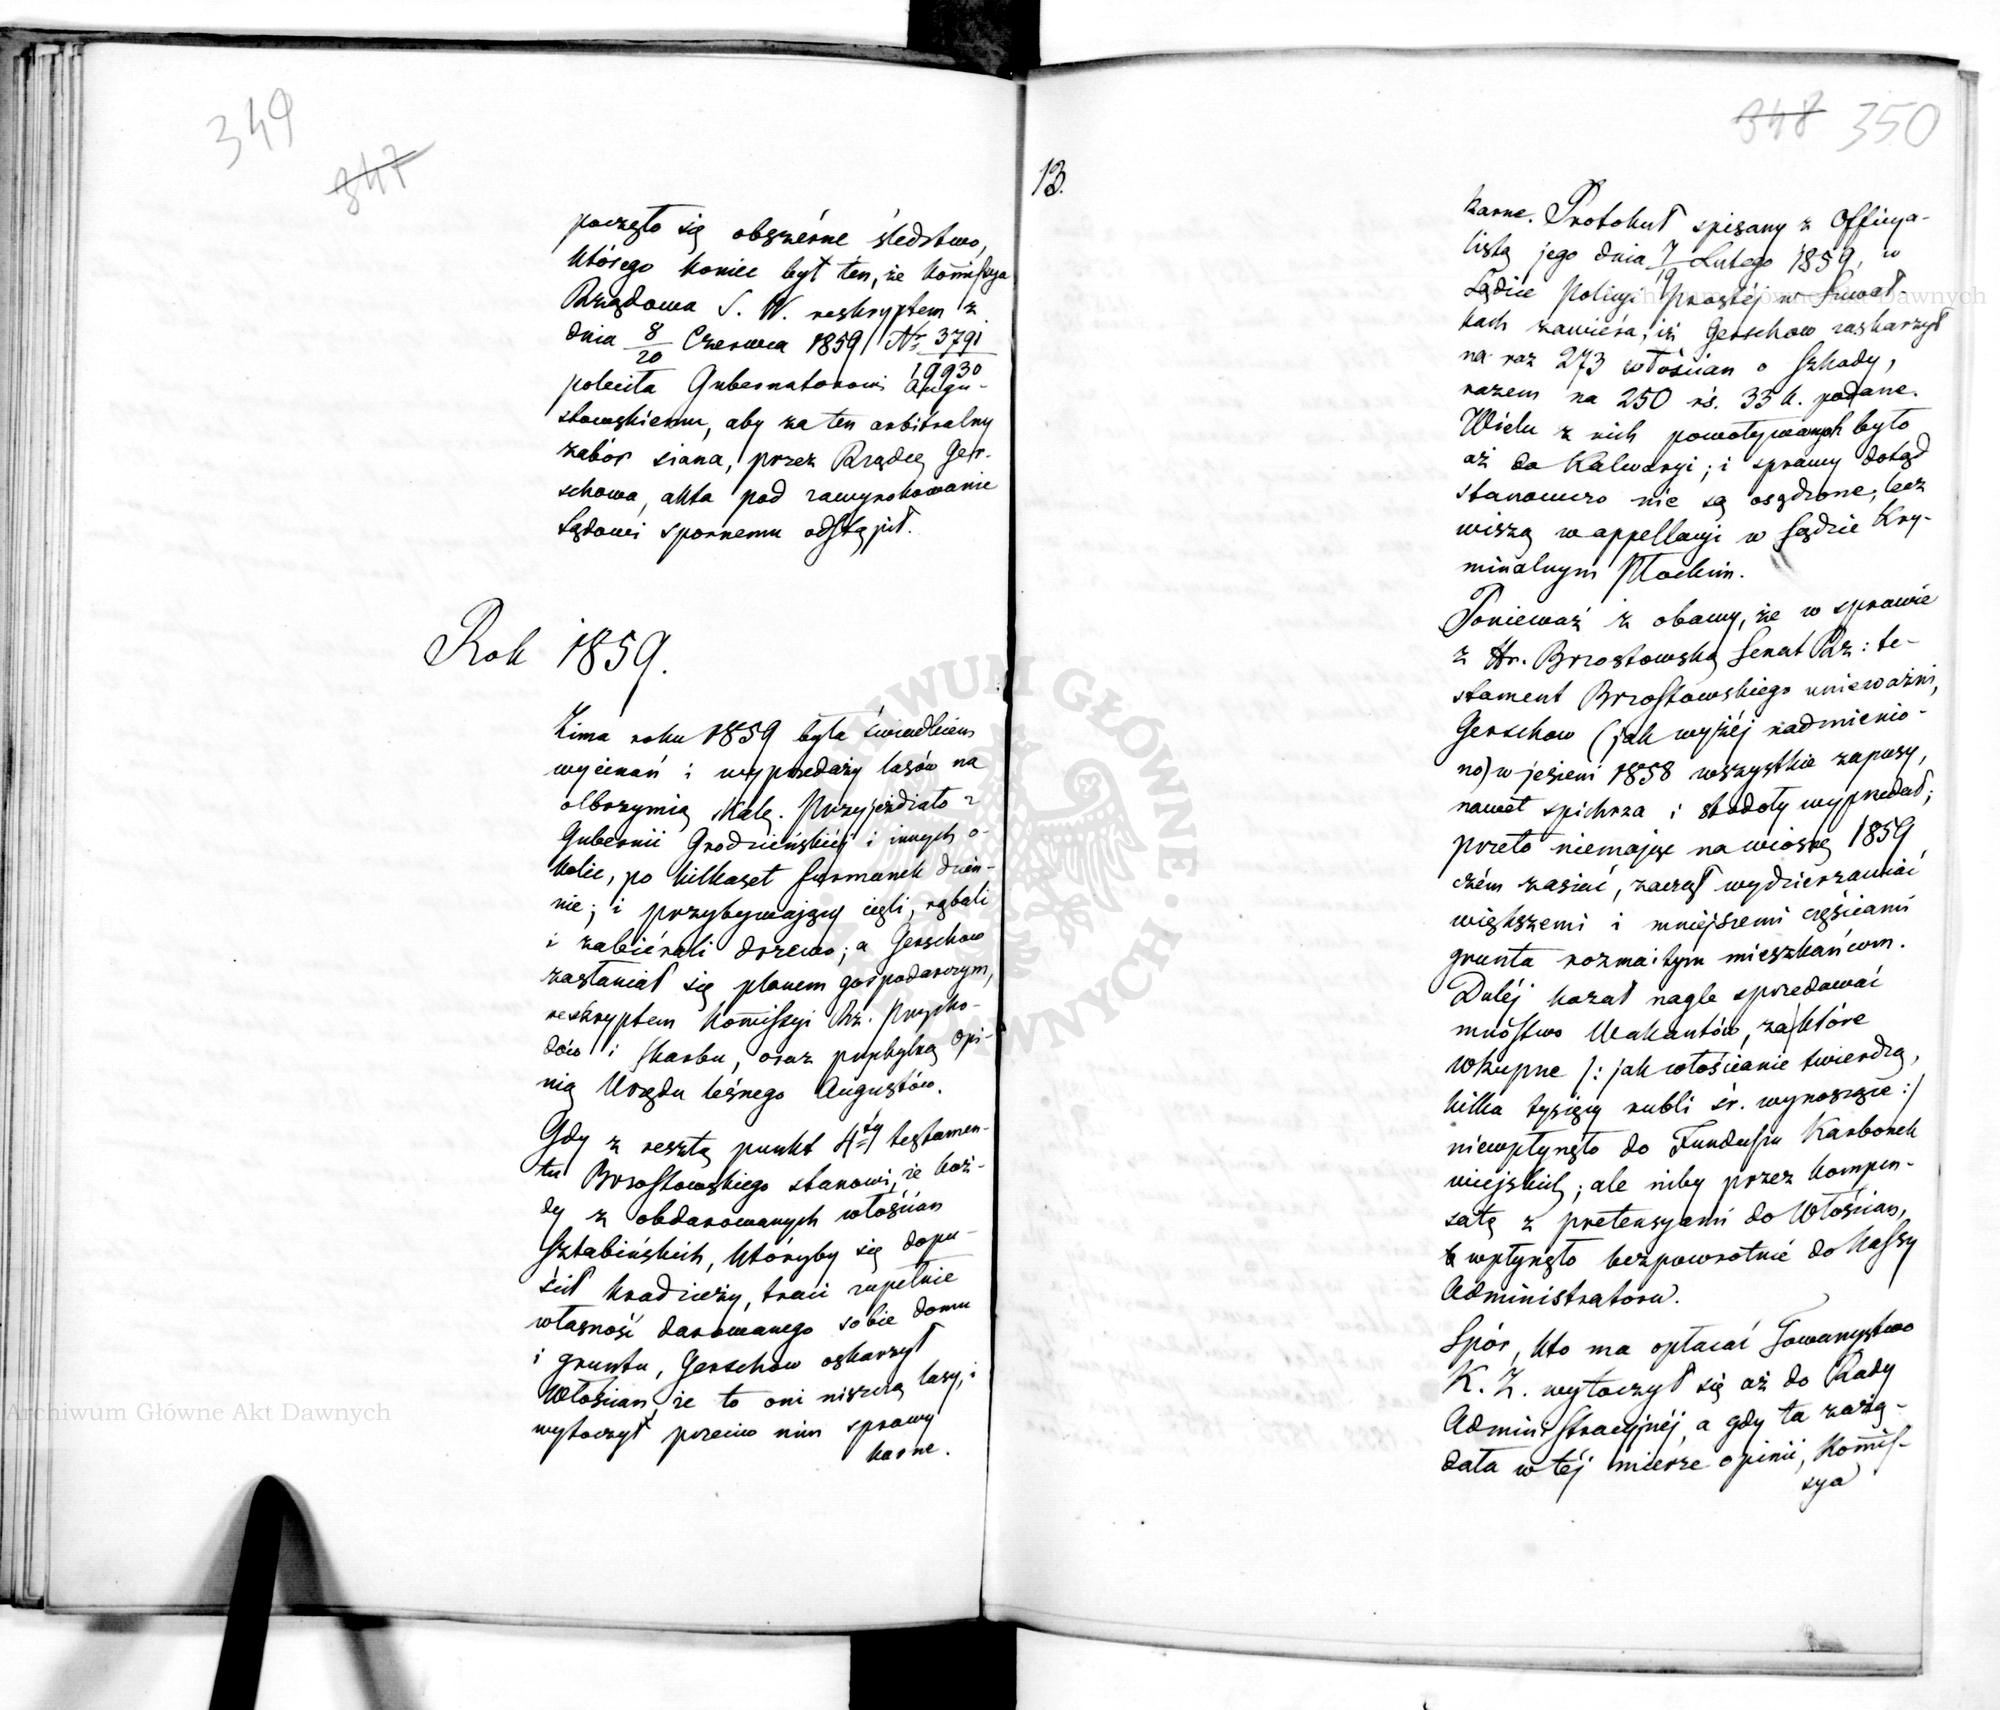 349
347
poczęło się obszérne śledztwo,
którego koniec był ten, że Kom̄issya
Rządowa S. W. reskryptem z
dnia 8/20 Czerwca 1859 Nr 3791/19930
poleciła Gubernatorowi Augu-
stowskiemu, aby za ten arbitralny
zabór siana, przez Rządcę Ger-
schowa, akta pod zawyrokowanie
Sądowi spornemu odstąpił.
Rok 1859.
Zima roku 1859 była świadkiem
wycinań i wyprzedaży lasów na
olbrzymią skalę. Przyjeżdżało z
Gubernii Grodzieńskiéj i innych o-
kolic, po kilkaset furmanek dzien-
nie; i przybywający cięli, rąbali
i zabiérali drzewo; a Gerschow
zasłaniał się planem gospodarczym,
reskryptem Kom̄issyi Rz. Przycho-
dów i Skarbu, oraz przychylną opi-
nią Urzędu leśnego Augustów.
Gdy z resztą punkt 4ty testamen-
tu Brzostowskiego stanowi, że każ-
dy z obdarowanych włościan
Sztabińskich, któryby się dopu-
ścił kradzieży, traci zupełnie
własność darowanego sobie domu
i gruntu, Gerschow oskarżył
Włościan, że to oni niszczą lasy, i
wytoczył przeciw nim sprawy
karne.
13.
348 350
karne. Protokuł spisany z Officya-
listą jego dnia 7/19 Lutego 1859, w
Sądzie Policyi Prostéj w Suwał-
kach zawiéra, iż Gerschow zaskarżył
na raz 273 włościan o szkody,
razem na 250 rś. 33 k. podane.
Wielu z nich powoływanych było
aż do Kalwaryi; i sprawy dotąd
stanowczo nie są osądzone, lecz
wiszą w appellacyi w Sądzie Kry-
minalnym Płockim.
Ponieważ z obawy, że w sprawie
z Hr. Brzostowską Senat Rz: te-
stament Brzostowskiego unieważni,
Gerschow (jak wyżéj nadmienio-
no) w jesieni 1858 wszystkie zapasy,
nawet spichrza i stodoły wyprzedał;
przeto niemając na wiosnę 1859
czém zasiać, zaczął wydzierżawiać
większemi i mniejszemi częściami
grunta rozmaitym mieszkańcom.
Daléj kazał nagle sprzedawać
mnóstwo Wakantów, za które
wkupne /: jak włościanie twierdzą,
kilka tysięcy rubli śr. wynoszące :/
niewpłynęło do Funduszu Karbonek
wiejskich; ale niby przez kompen-
satę z pretensyami do Włościan,
wpłynęło bezpowrotnie do Kassy
Administratora.
Spór, kto ma opłacać Towarzystwo
K. Z. wytoczył się aż do Rady
Administracyjnéj, a gdy ta zażą-
dała w téj mierze opinii, Kom̄is-
sya
Archiwum Główne Akt Dawnych
Archiwum Główne Akt Dawnych
ARCHIWUM GŁÓWNE AKT DAWNYCH